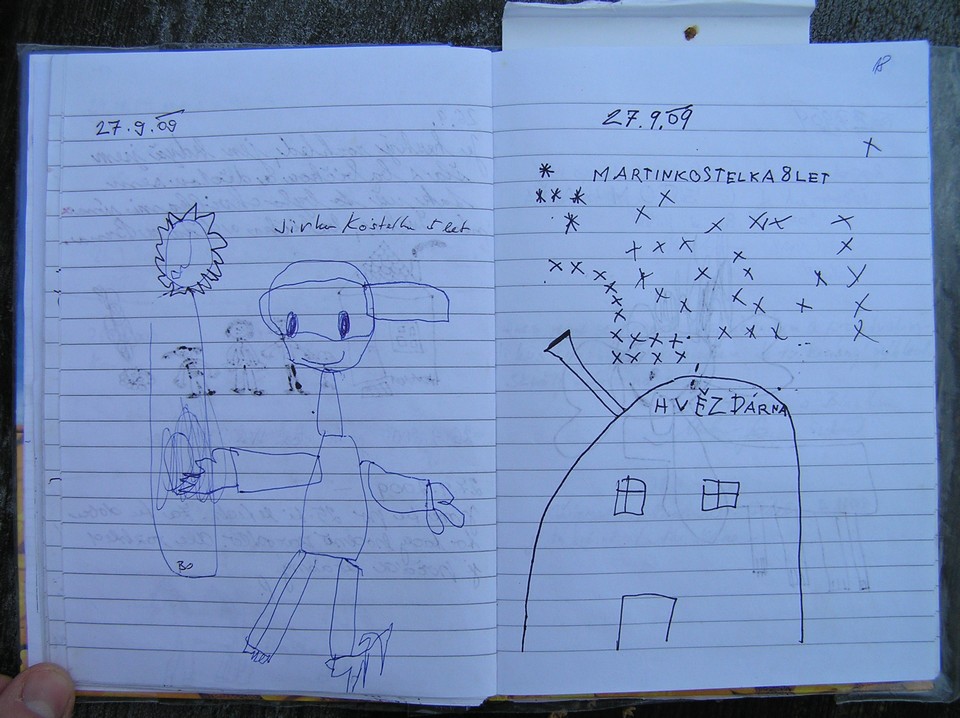 27.9.09
Jirka Kostelka 5 let
BO
18
27.9.09
MARTINKOSTELKA 8 LET
HVĚZDÁRNA